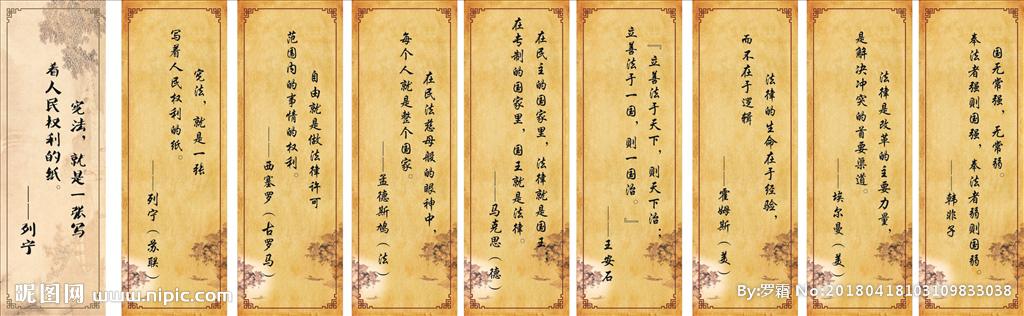 宪法，就是一张写
着人民权利的纸。
——列宁
宪法，就是一张
写着人民权利的纸。
——列宁（苏联）
自由就是做法律许可
范围内的事情的权利。
——西塞罗（古罗马）
在民法慈母般的眼神中，
每个人就是整个国家。
——孟德斯鸠（法）
在民主的国家里，法律就是国王；
在专制的国家里，国王就是法律。
——马克思（德）
『立善法于天下，则天下治；
立善法于一国，则一国治。』
——王安石
法律的生命在于经验，
而不在于逻辑
——霍姆斯（美）
法律是改革的主要力量，
是解决冲突的首要渠道。
——埃尔曼（美）
国无常强，无常弱。
奉法者强则国强，奉法者弱则国弱。
——韩非子
昵图网 www.nipic.com
By:罗霜 No:20180418103109833038